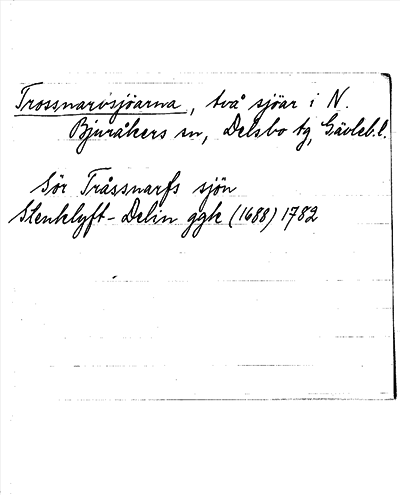 Trossnarvsjöarna, två sjöar i N.
Bjuråkers sn, Delsbo tg, Gävleb. l.
Sör Tråssnarfs sjön
Stenklyft-Delin ggk (1688) 1782